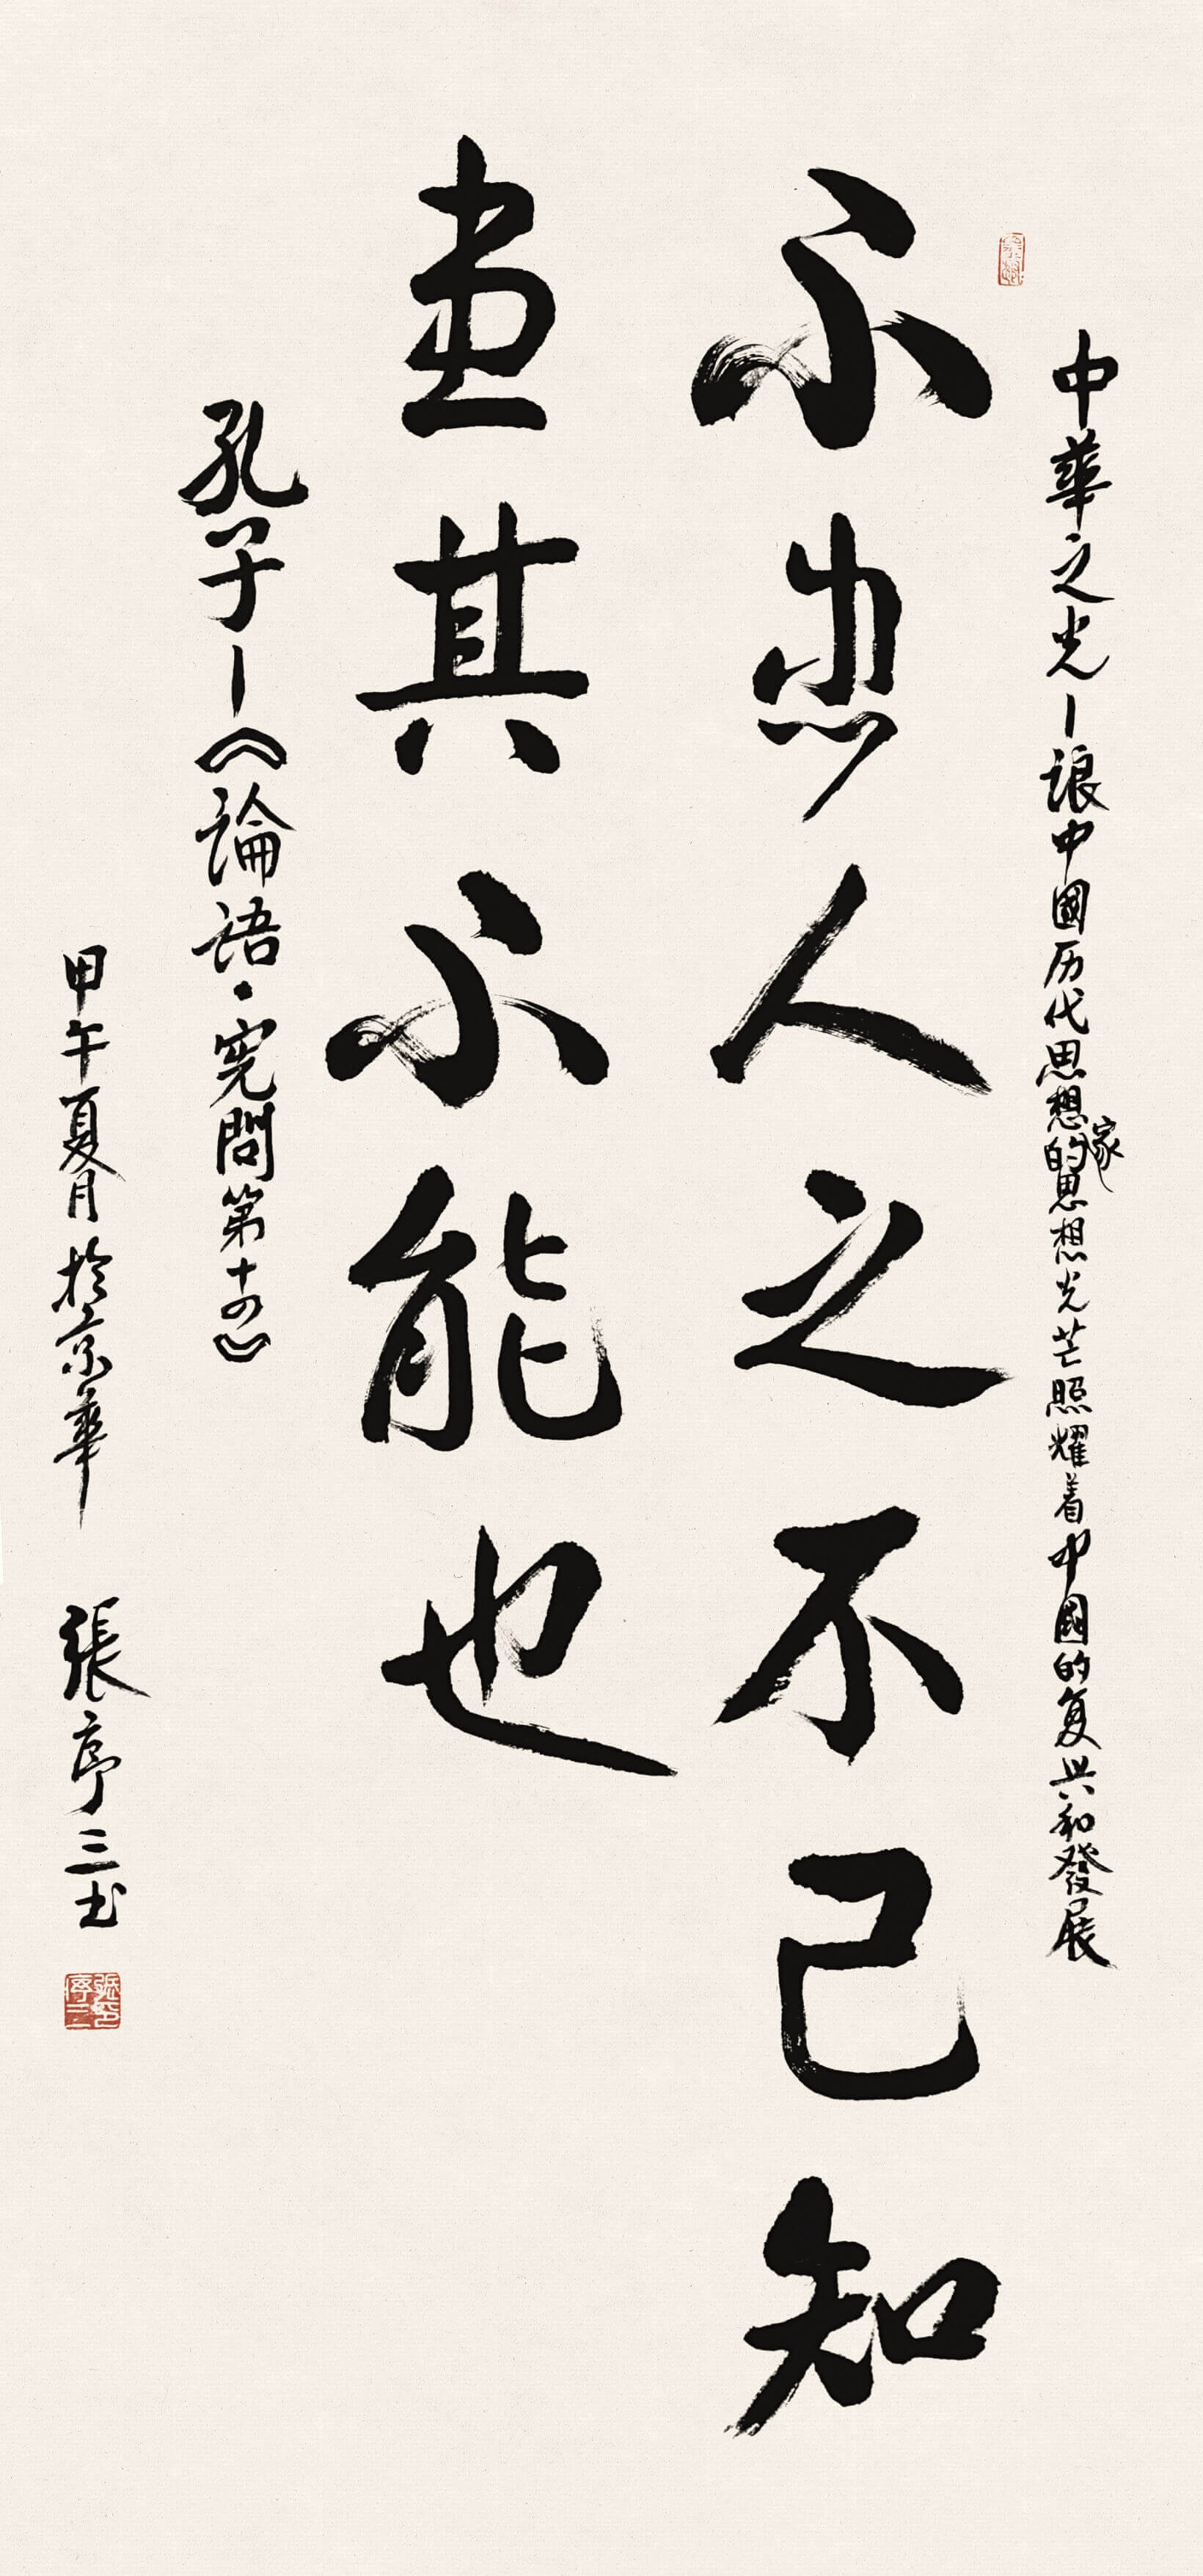 中華之光—讓中國历代思想家的思想光芒照耀着中國的复兴和發展
不患人之不己知
患其不能也
孔子—《論語·宪問第十四》
甲午夏月於京華 張亭三书